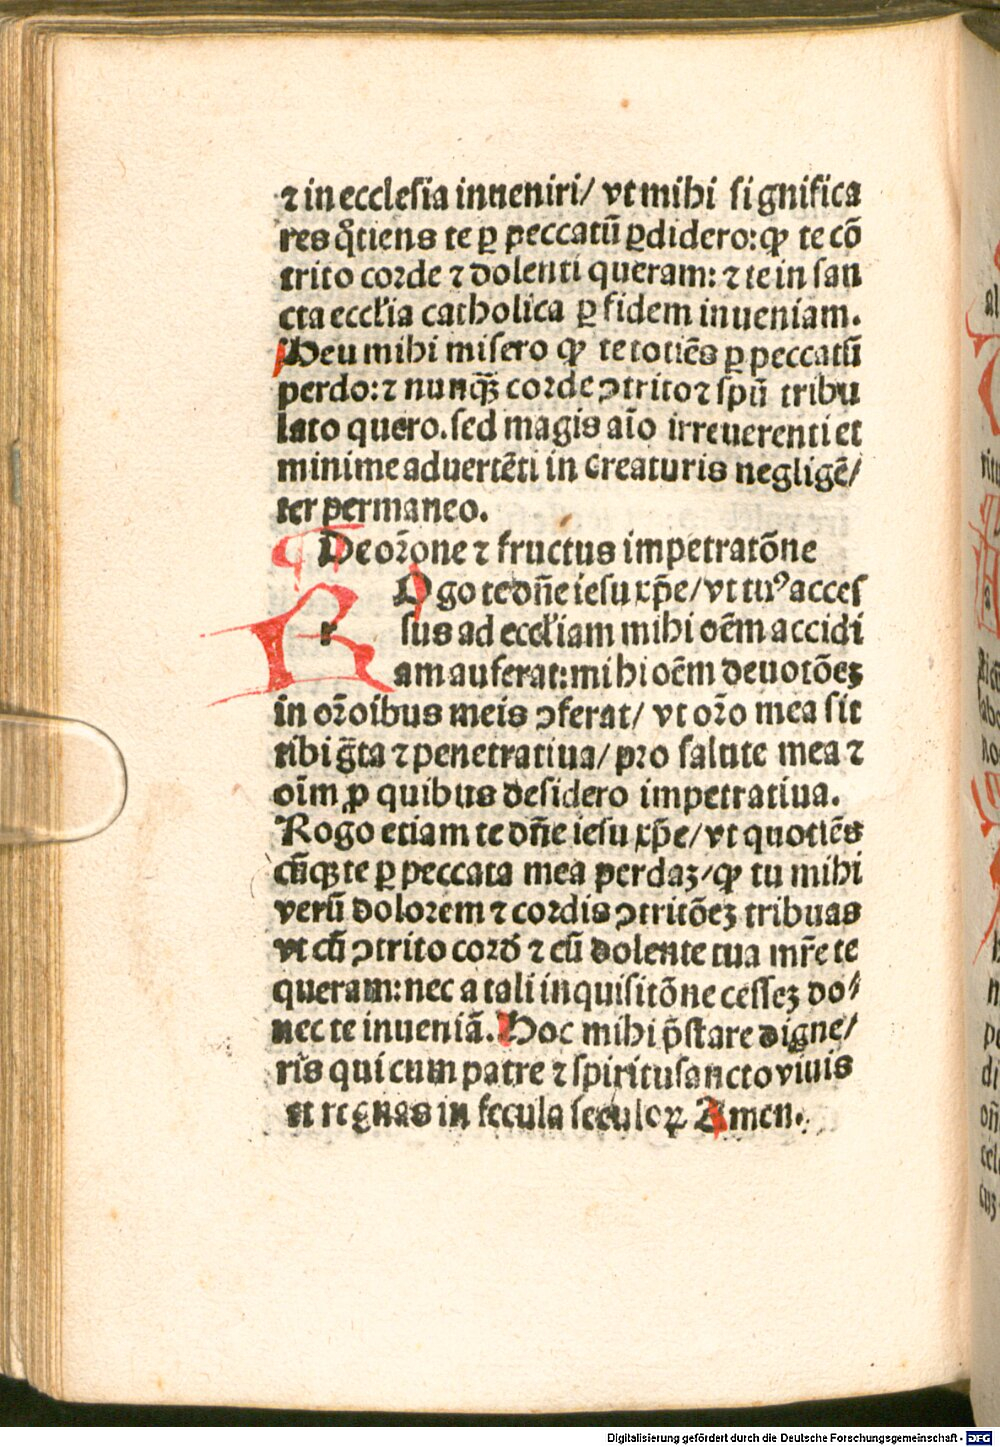 ⁊ in ecclesia inueniri/ vt mihi significa
res q̃tiens te ꝑ peccatū ꝑdidero: ꝙ te cō
trito corde ⁊ dolenti queram: ⁊ te in san
cta eccľia catholica ꝑ fidem inueniam.
Heu mihi misero ꝙ te totiēs ꝑ peccatū
perdo: ⁊ nunqȝ̄ corde ↄtrito ⁊ spū tribu
lato quero. sed magis aīo irreuerenti et
minime aduertēti in creaturis negligē/
ter permaneo.
De or̄one ⁊ fructus impetratōne
ROgo te dn̄e iesu xp̄e/ vt tuꝰ acces
sus ad eccľiam mihi oēm accidi
am auferat: mihi oēm deuotōeȝ
in or̄oibus meis ↄferat/ vt or̄o mea sit
tibi g̃ta ⁊ penetratiua/ pro salute mea ⁊
oīm ꝓ quibus desidero impetratiua.
Rogo etiam te dn̄e iesu xp̄e/ vt quotiēs
cūqȝ te ꝑ peccata mea perdaȝ/ ꝙ tu mihi
verū dolorem ⁊ cordis ↄtritōeȝ tribuas
vt cū ↄtrito corđ ⁊ cū dolente tua mr̄e te
queram: nec a tali inquisitōne cesseȝ do/
nec te inueniā. Hoc mihi p̄stare digne/
ris qui cum patre ⁊ spiritusancto viuis
et regnas in secula seculoꝝ Amen.
Digitalisierung gefördert durch die Deutsche Forschungsgemeinschaft - DFG